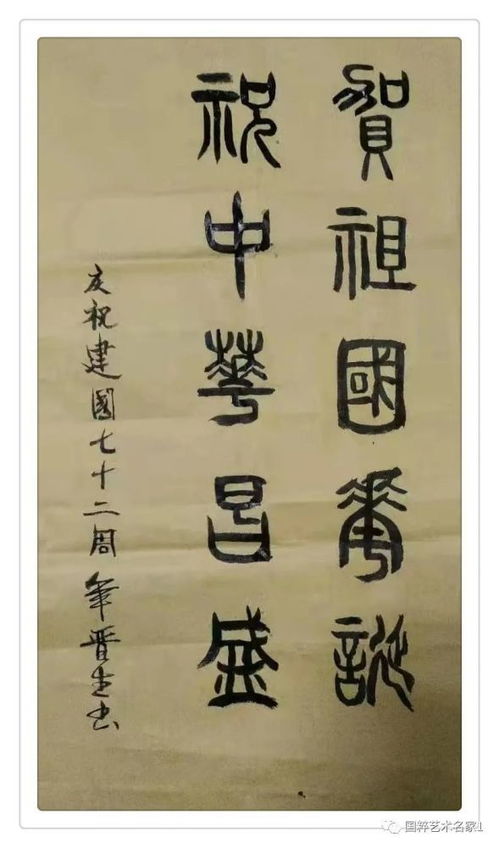 賀祖國華誕
祝中華昌盛
庆祝建國七十二周年晋书
国粹艺术名家1